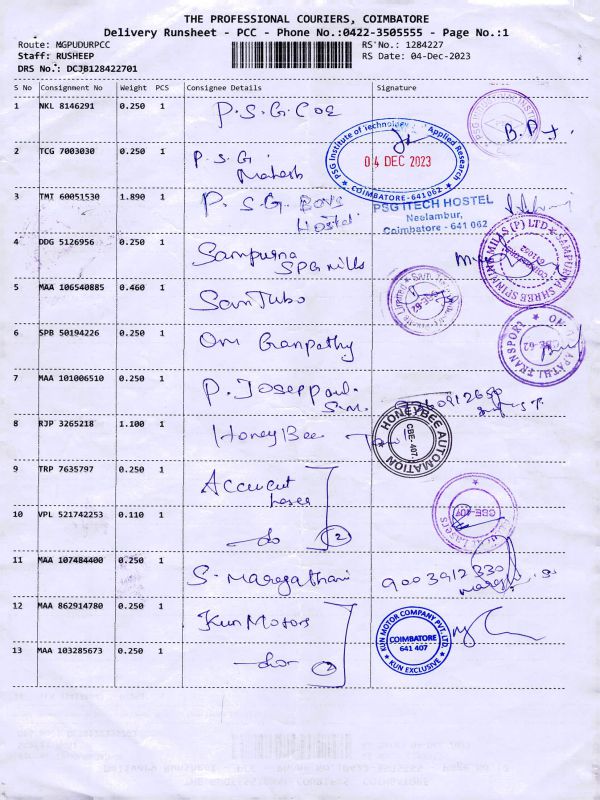 THE PROFESSIONAL COURIERS, COIMBATORE
Delivery Runsheet - PCC - Phone No.:0422-3505555 - Page No.:1
Route: MGPUDURPCC RS No.: 1284227
Staff: RUSHEEP RS Date: 04-Dec-2023
DRS No.: DCJB128422701
S No Consignment No Weight PCS Consignee Details Signature
1 NKL 8146291 0.250 1 P.S.G. COE
2 TCG 7003030 0.250 1 P.S.G.
Mahesh
PSG Institute of Technology Applied Research
04 DEC 2023
COIMBATORE - 641 062
3 TMI 60051530 1.890 1 P.S.G. BOYS
Hostel
PSG ITECH HOSTEL
Neelambur,
Coimbatore - 641 062
4 DDG 5126956 0.250 1 Sampurna
SPG mills
SAMPURNA SHREE SPINNING MILLS (P) LTD
5 MAA 106540885 0.460 1 Sam Turbo
6 SPB 50194226 0.250 1 Om Ganpathy
TRANSPORT
7 MAA 101006510 0.250 1 P. Joseppaul
S.M.
8 RJP 3265218 1.100 1 HoneyBee
HONEYBEE AUTOMATION
CBE-407.
9 TRP 7635797 0.250 1 Accucut
Laser
10 VPL 521742253 0.110 1 do (2)
CBE-407
11 MAA 107484400 0.250 1 S. Maragathani 9003912330
12 MAA 862914780 0.250 1 Kun Motors
KUN MOTOR COMPANY PVT. LTD.
COIMBATORE
641 407
KUN EXCLUSIVE
13 MAA 103285673 0.250 1